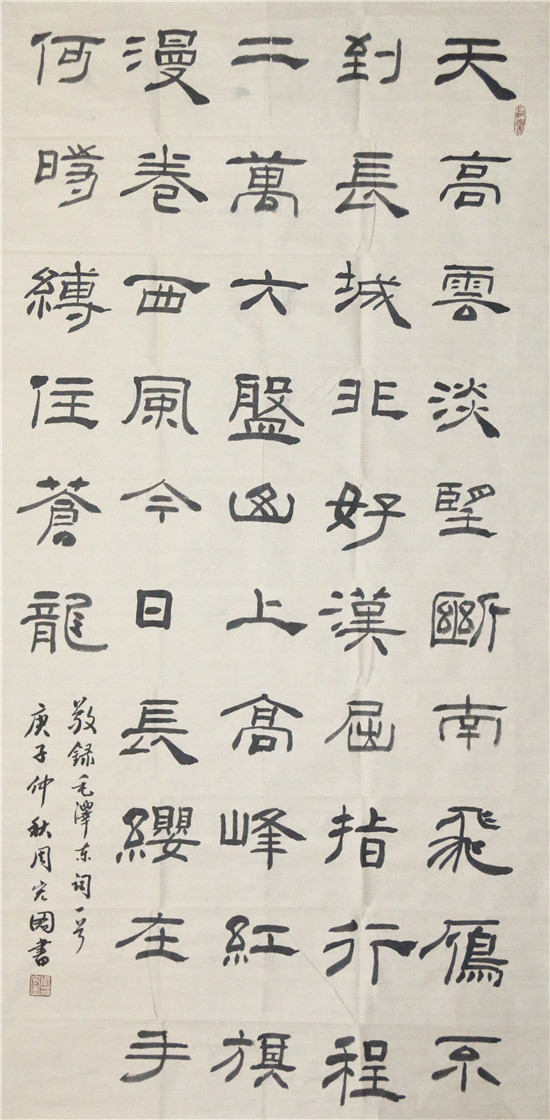 天高雲淡望斷南飛鴈不
到長城非好漢屈指行程
二萬六盤山上高峰紅旗
漫卷西風今日長纓在手
何時縛住蒼龍
敬録毛澤东詞一首
庚子仲秋周書